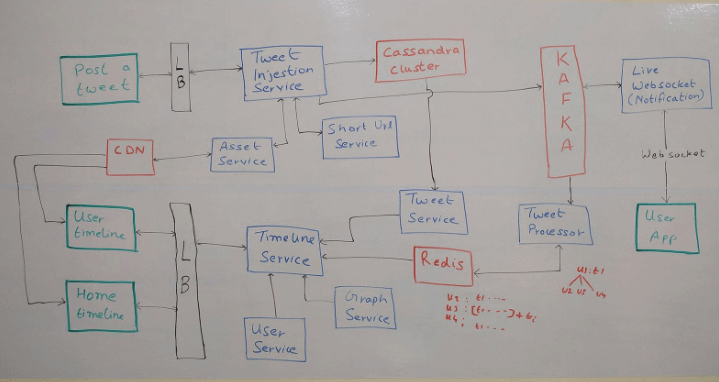 Post a
tweet
L
B
Tweet
Injection
Service
Cassandra
Cluster
K
A
F
K
A
Live
Websocket
(Notification)
CDN
Asset
Service
Short Url
Service
Web socket
User
timeline
L
B
Timeline
Service
Tweet
Service
Tweet
Processor
User
App
Redis
Home
timeline
User
Service
Graph
Service
u1:t1
u2 u3 u4
u2 : t1 ....
u3 : [t1 .. ..] + ti
u4 : t1 ....